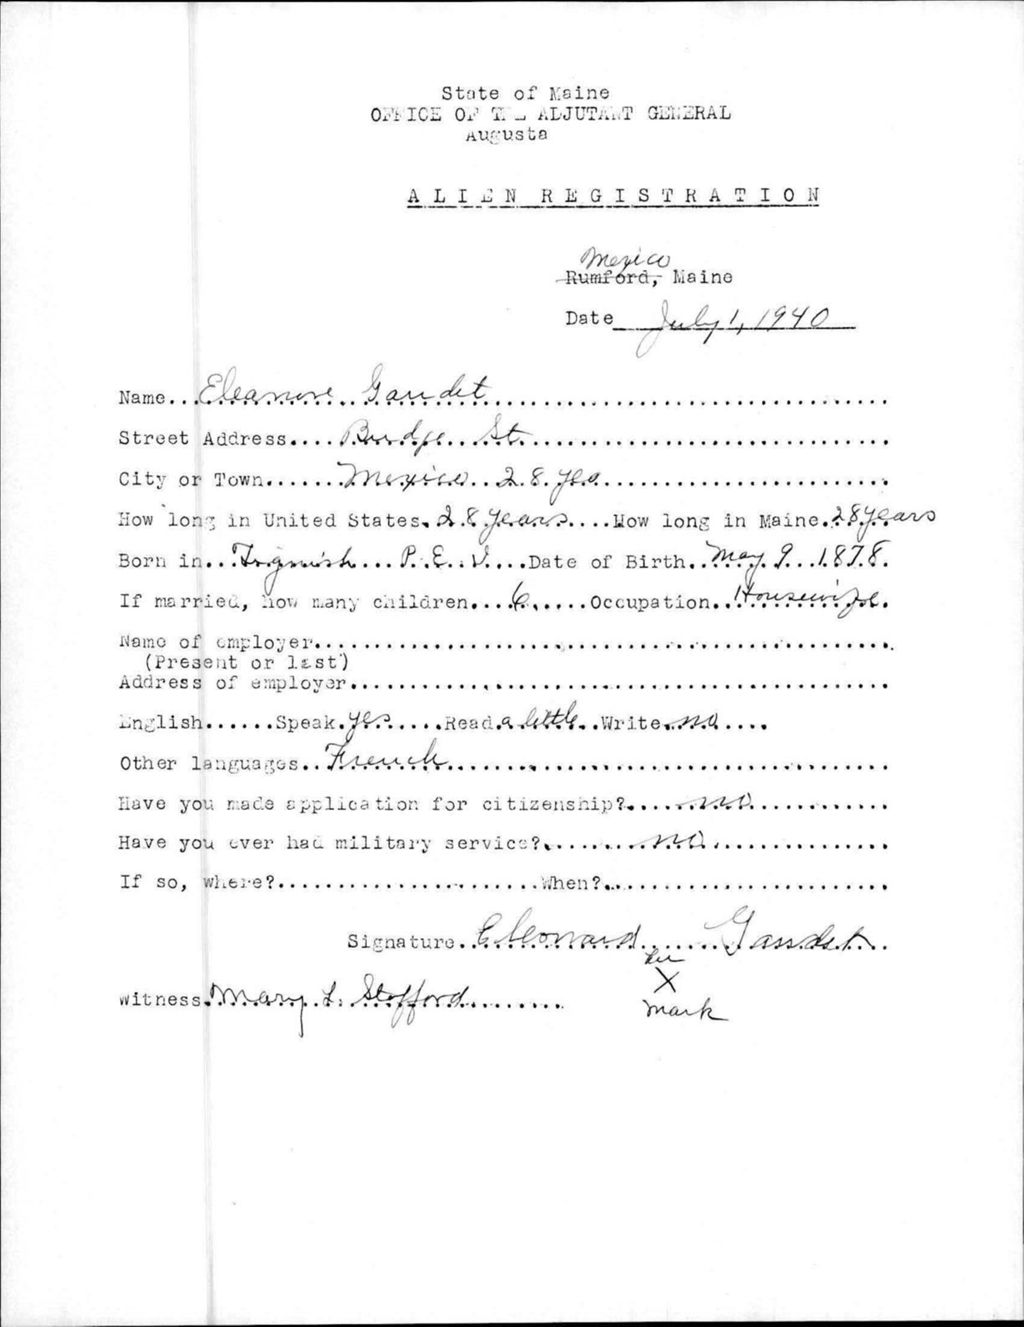 State of Maine
OFFICE OF THE ADJUTANT GENERAL
Augusta
ALIEN REGISTRATION
Mexico
Rumford, Maine
Date July 1, 1940
Name...Eleanore Gaudet
Street Address....Bridge St.
City or Town.......Mexico 28 yrs
How long in United States. 28 years....How long in Maine. 28 years
Born in... P. E. I....Date of Birth..May 9 1878.
If married, how many children....6......Occupation..Housewife.
Name of employer
(Present or last)
Address of employer
English......Speak.yes.....Read.a little..Write..no....
Other languages..French
Have you made application for citizenship?.....no
Have you ever had military service?.....no
If so, where?.....When?
Signature..Eleonard Gaudet..
her
X
witness.Mary L. Stofford
mark